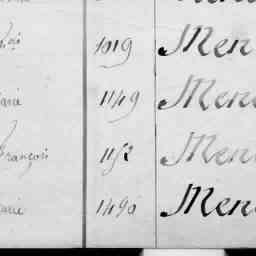 1019 Men
Marie 1149 Men
François 1152 Men
Marie 1490 Men